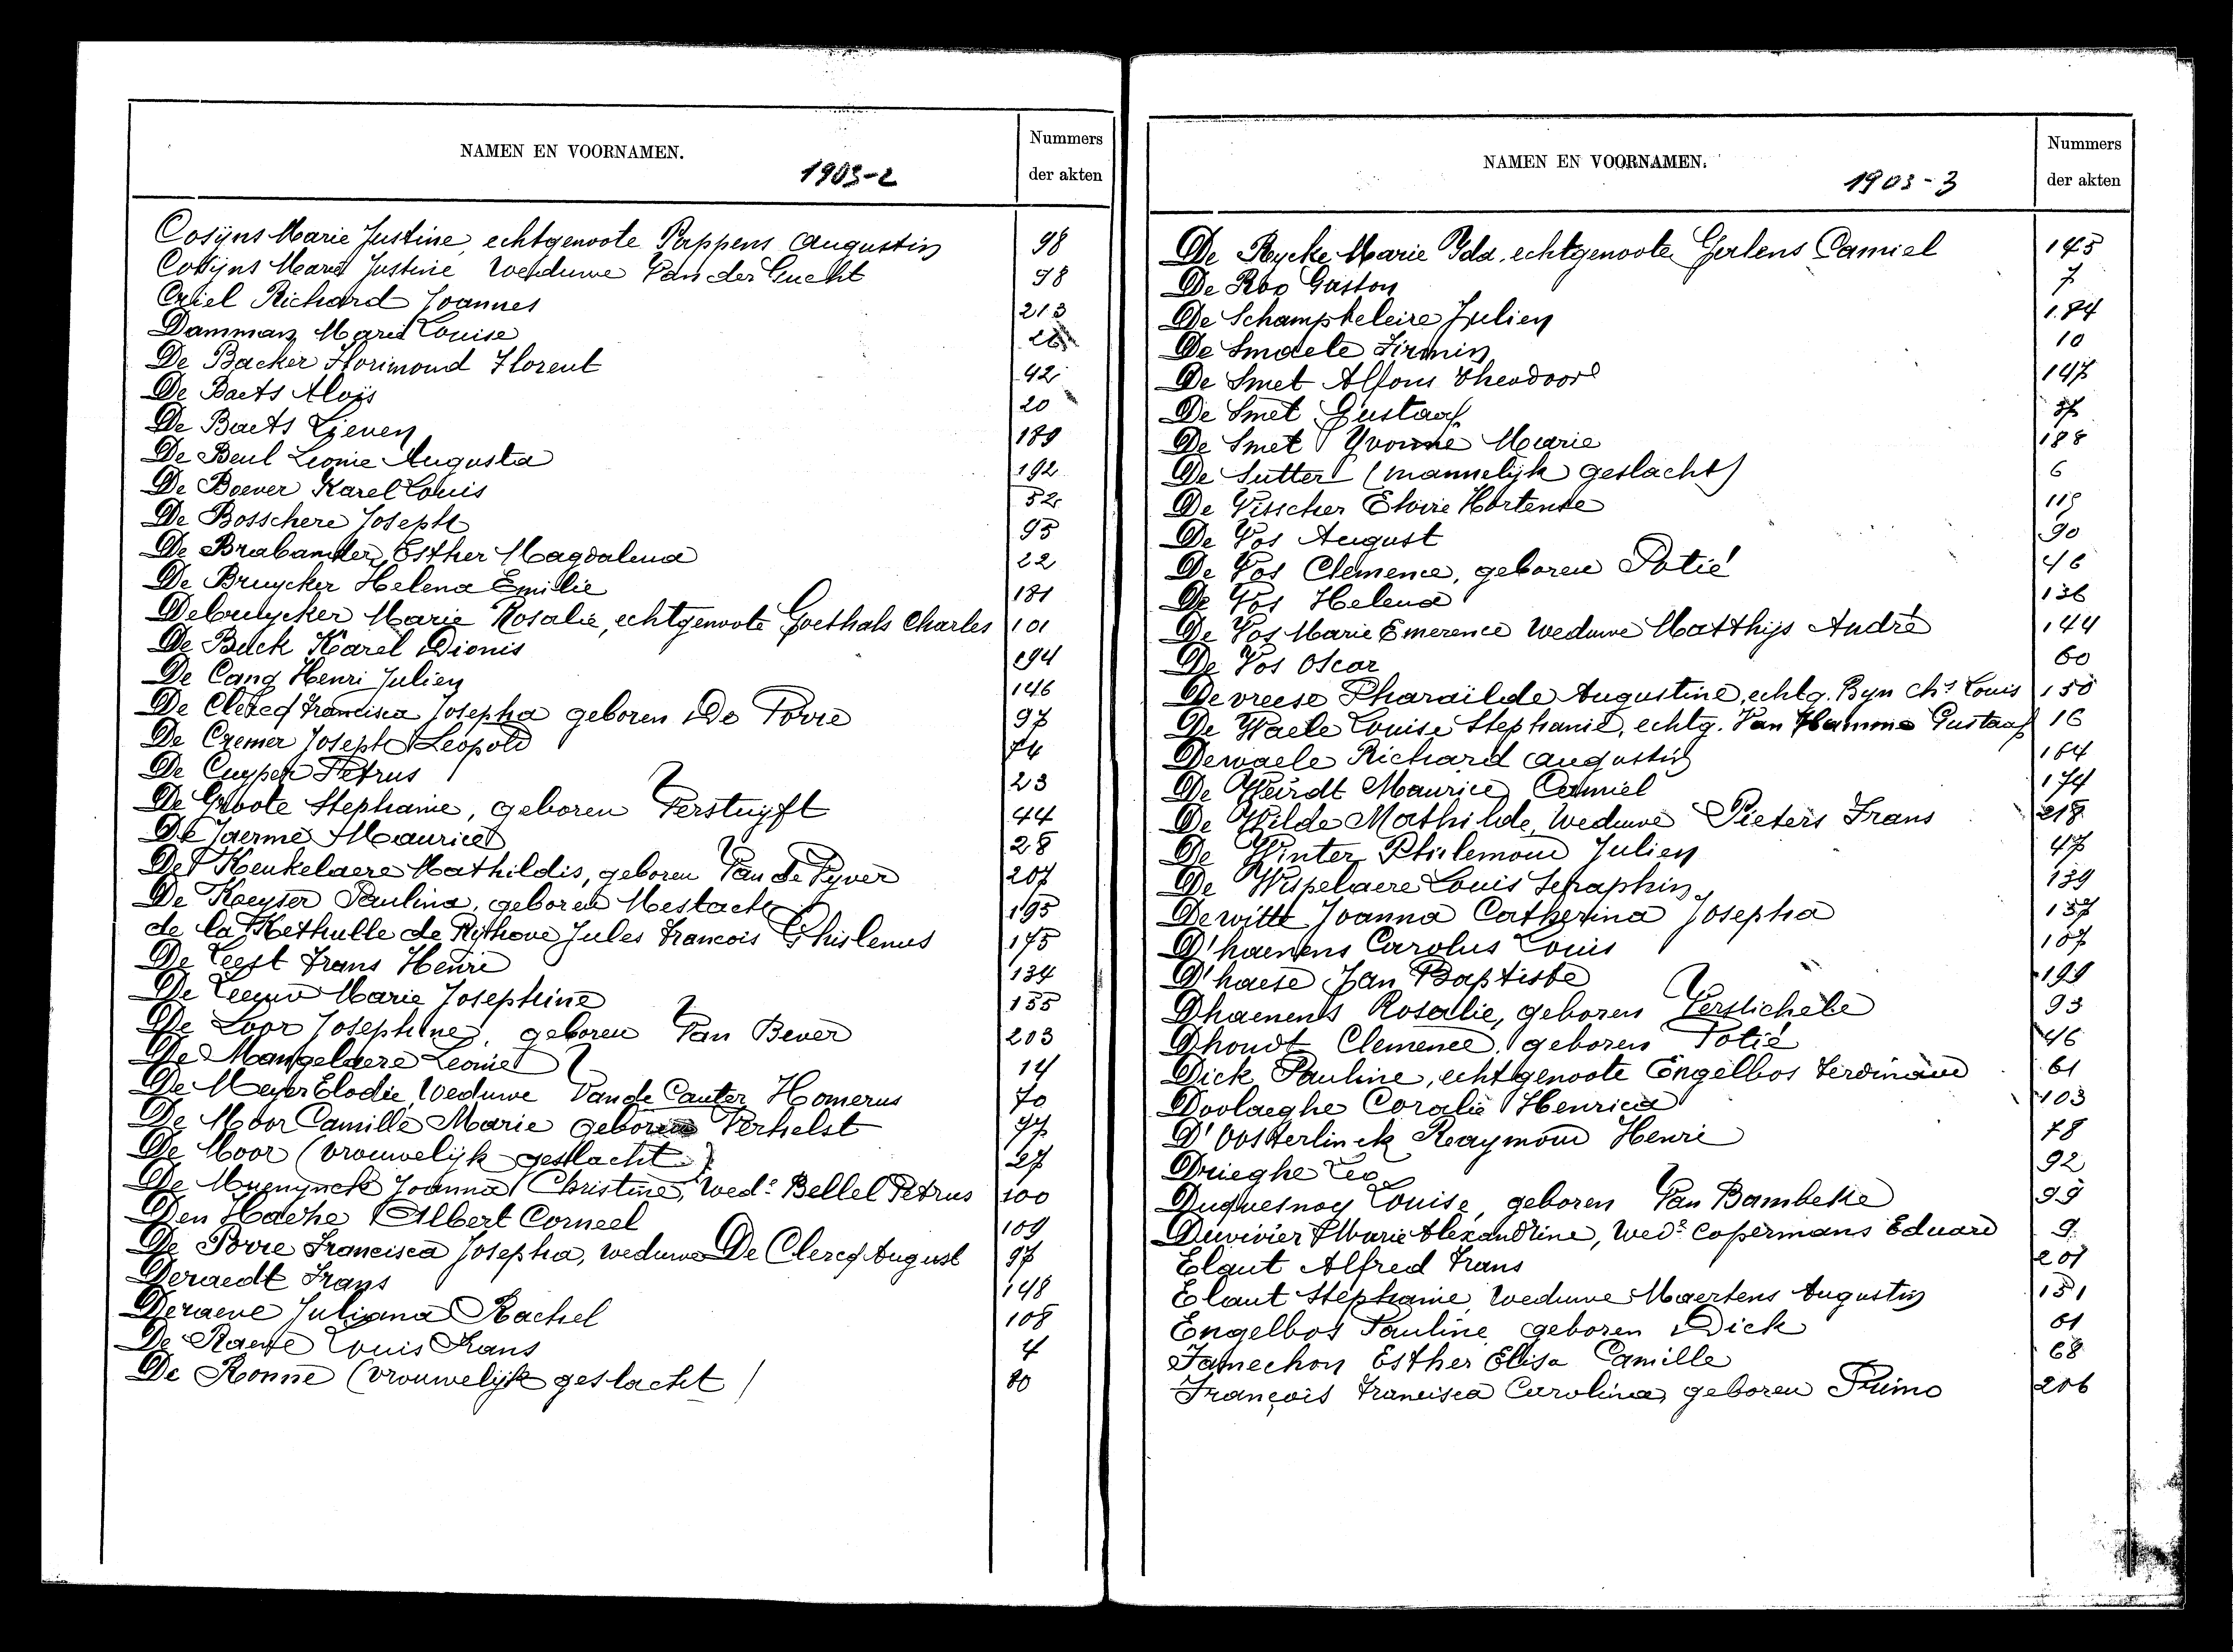 NAMEN EN VOORNAMEN.
1903-2
Nummers
der akten
Cosÿns Marie Justine, echtgenoote Pappens Augustin 98
Cosÿns Marie Justine Weduwe Van der Gucht 98
Criel Richard Joannes 213
Damman Marie Louise 26
De Backer Florimond Florent 42
De Baets Aloïs 20
De Baets Lieven 189
De Beul Leonie Augusta 192
De Boever Karel Louis 52
De Bosschere Joseph 95
De Brabander Esther Magdalena 22
De Bruycker Helena Emilie 181
Debruycker Marie Rosalie, echtgenoote Goethals Charles 101
De Buck Karel Dionis 194
De Cang Henri Julien 146
De Clercq Francisca Josepha geboren De Porre 97
De Cremer Joseph Leopold 74
De Cuyper Petrus 23
De Groote Stephanie, geboren Verstuyft 44
De Jaerme Maurice 28
De Keukelaere Mathildis, geboren Van de Vyver 207
De Keyser Paulina, geboren Mestach 195
de la Kethulle de Ryhove Jules Francois Ghislenus 175
De Leest Frans Henri 134
De Leeuw Marie Josephine 155
De Loor Josephine, geboren Van Bever 203
De Mangelaere Leonie 14
De Meyer Elodie, Weduwe Van de Cauter Homerus 70
De Moor Camille Marie geboren Verhelst 77
De Moor (vrouwelijk geslacht) 27
De Muenynck Joanna Christine, Wede Bellel Petrus 100
Den Haehe Albert Corneel 109
De Porre Francisca Josepha, weduwe De Clercq August 97
Deraedt Frans 148
Deraeve Juliana Rachel 108
De Raeve Louis Frans 4
De Ronne (vrouwelijk geslacht) 80
NAMEN EN VOORNAMEN.
1903-3
Nummers
der akten
De Rycke Marie Ida, echtgenoote Gerlens Camiel 145
De Roo Gaston 7
De Schampheleire Julien 184
De Smaele Firmin 10
De Smet Alfons Theodoor 147
De Smet Gustaaf 37
De Smet Yvonne Marie 188
De Sutter (mannelijk geslacht) 6
De Visscher Elvire Hortense 119
De Vos August 90
De Vos Clemence, geboren Potié 46
De Vos Helena 136
De Vos Marie Emerence Weduwe Matthijs André 144
De Vos Oscar 60
Devreese Pharaïlde Augustine, echtg. Byn Chs Louis 150
De Waele Louise Stephanie, echtg. Van Hamme Gustaaf 16
Dewaele Richard Augustin 164
De Weirdt Maurice Camiel 174
De Wilde Mathilde, Weduwe Pieters Frans 218
De Winter Philemon Julien 47
De Wispelaere Louis Seraphin 139
Dewitte Joanna Catherina Josepha 137
D'haenens Carolus Louis 107
D'haese Jan Baptiste 199
Dhaenens Rosalie, geboren Verslichele 93
Dhondt Clemence, geboren Potié 46
Dick Pauline, echtgenoote Engelbos Ferdinand 61
Doolaeghe Coralie Henrica 103
D'Oosterlinck Raymond Henri 78
Drieghe Leo 92
Duquesnoy Louise, geboren Van Bambeke 99
Duvivier Marie Alexandrine, Wede Copermans Eduard 9
Elaut Alfred Frans 201
Elaut Stephanie, Weduwe Maertens Augustin 151
Engelbos Pauline geboren Dick 61
Famechon Esther Elisa Camille 68
François Francisca Carolina, geboren Primo 206